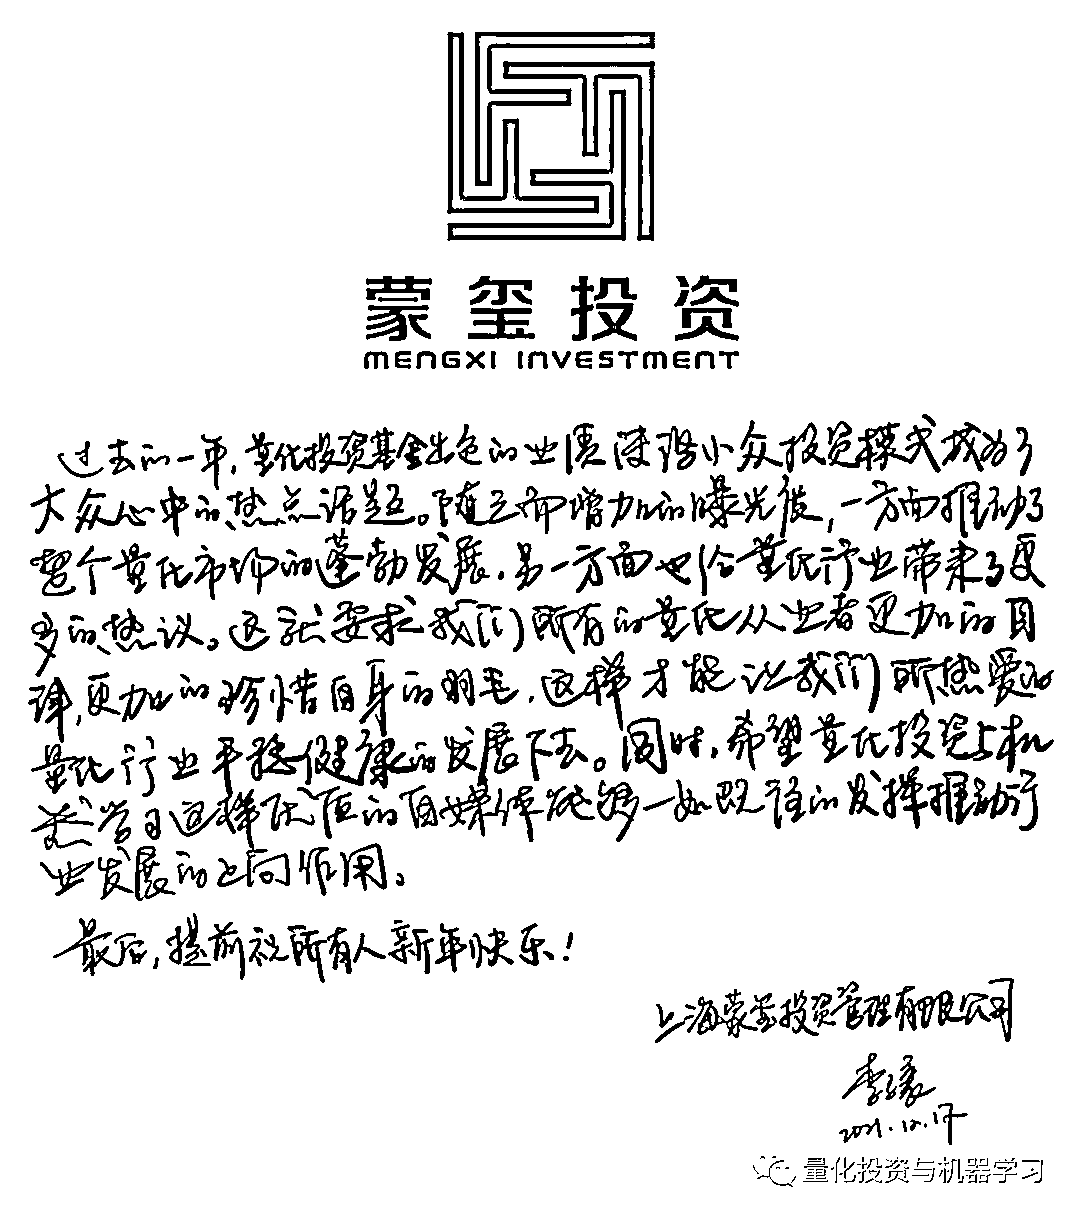 蒙玺投资
MENGXI INVESTMENT
过去的一年，量化投资基金出色的业绩使得小众投资模式成为了
大众心中的热点话题。随之而增加的曝光度，一方面推动了
整个量化市场的蓬勃发展，另一方面也给量化行业带来了更
多的热议。这就要求我们所有的量化从业者更加的自
律，更加的珍惜自身的羽毛，这样才能让我们所热爱的
量化行业平稳健康的发展下去。同时，希望量化投资与机
器学习这样优质的自媒体能够一如既往的发挥推动行
业发展的正向作用。
最后，提前祝所有人新年快乐！
上海蒙玺投资管理有限公司
李骧
2021.12.17
量化投资与机器学习